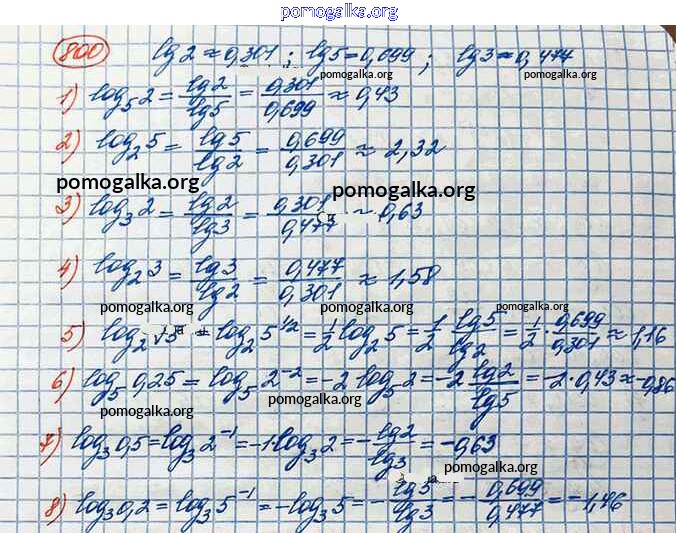 pomogalka.org
800 lg2≈0,301; lg5=0,699; lg3≈0,477
pomogalka.org pomogalka.org
1) log₅2 = lg2/lg5 = 0,301/0,699 ≈ 0,43
pomogalka.org
2) log₂5 = lg5/lg2 = 0,699/0,301 ≈ 2,32
pomogalka.org pomogalka.org
3) log₃2 = lg2/lg3 = 0,301/0,477 ≈ 0,63
4) log₂3 = lg3/lg2 = 0,477/0,301 ≈ 1,58
pomogalka.org pomogalka.org pomogalka.org
5) log₂√5 = log₂5^1/2 = 1/2 log₂5 = 1/2 · lg5/lg2 = 1/2 · 0,699/0,301 ≈ 1,16
6) log₅0,25 = log₅2⁻² = -2 log₅2 = -2 lg2/lg5 = -2·0,43 ≈ -0,86
pomogalka.org
7) log₃0,5 = log₃2⁻¹ = -1·log₃2 = - lg2/lg3 = -0,63
pomogalka.org
8) log₃0,2 = log₃5⁻¹ = -log₃5 = - lg5/lg3 = - 0,699/0,477 = -1,46